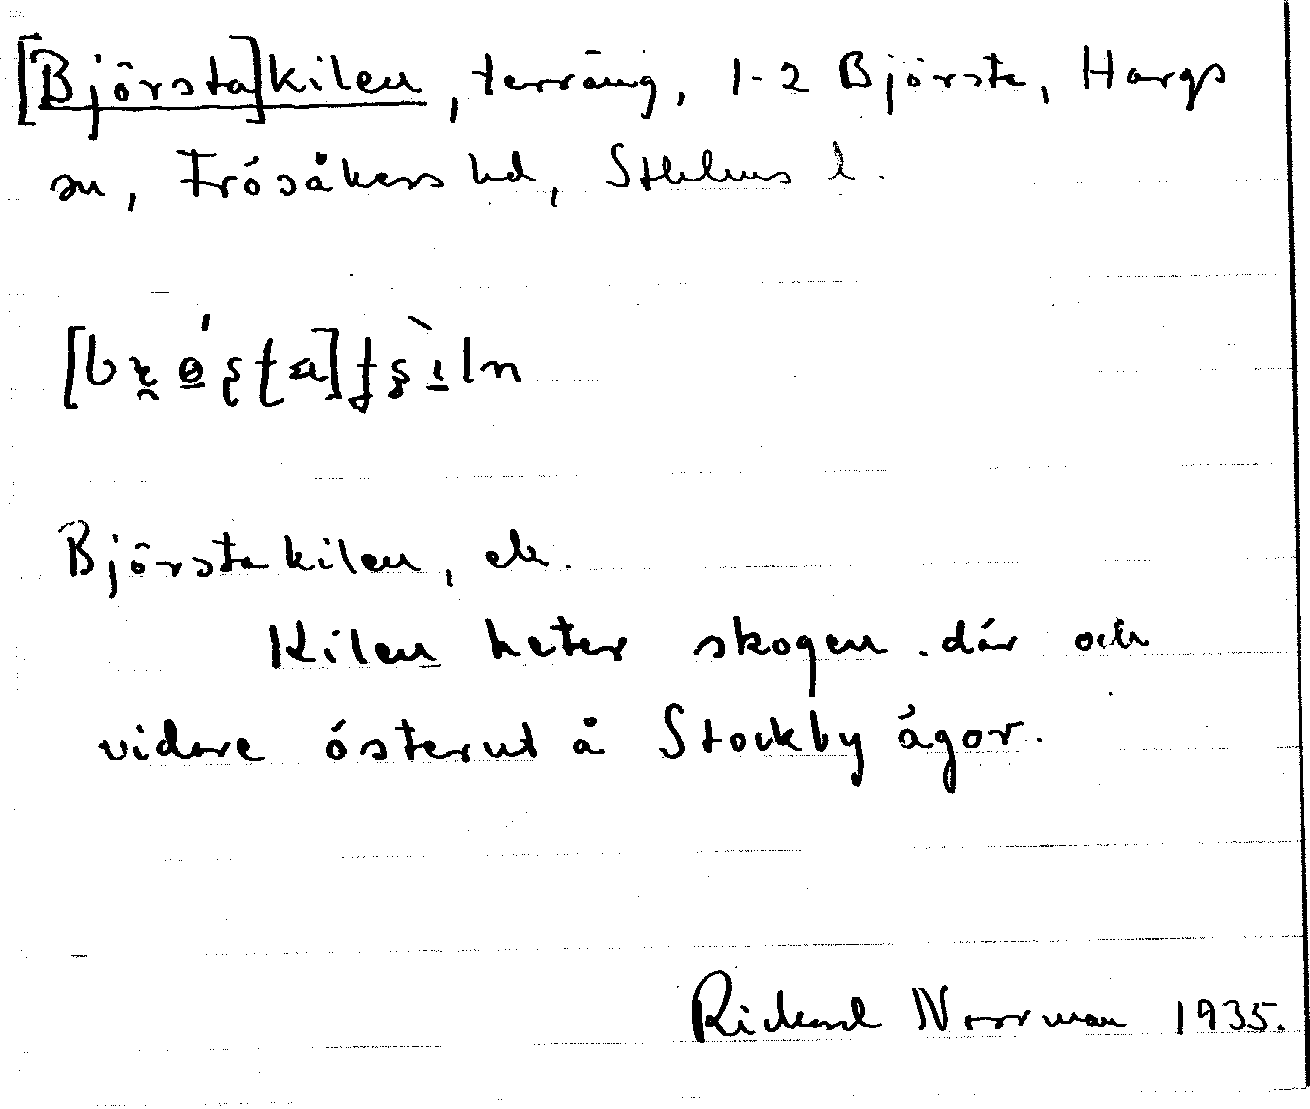 [Björsta]kilen, terräng, 1-2 Björsta, Hargs
sn, Frösåkers hd, Sthlms l.
Björstakilen, ek.
Kilen heter skogen där och
vidare österut å Stockby ägor.
Rickard Norrman 1935.